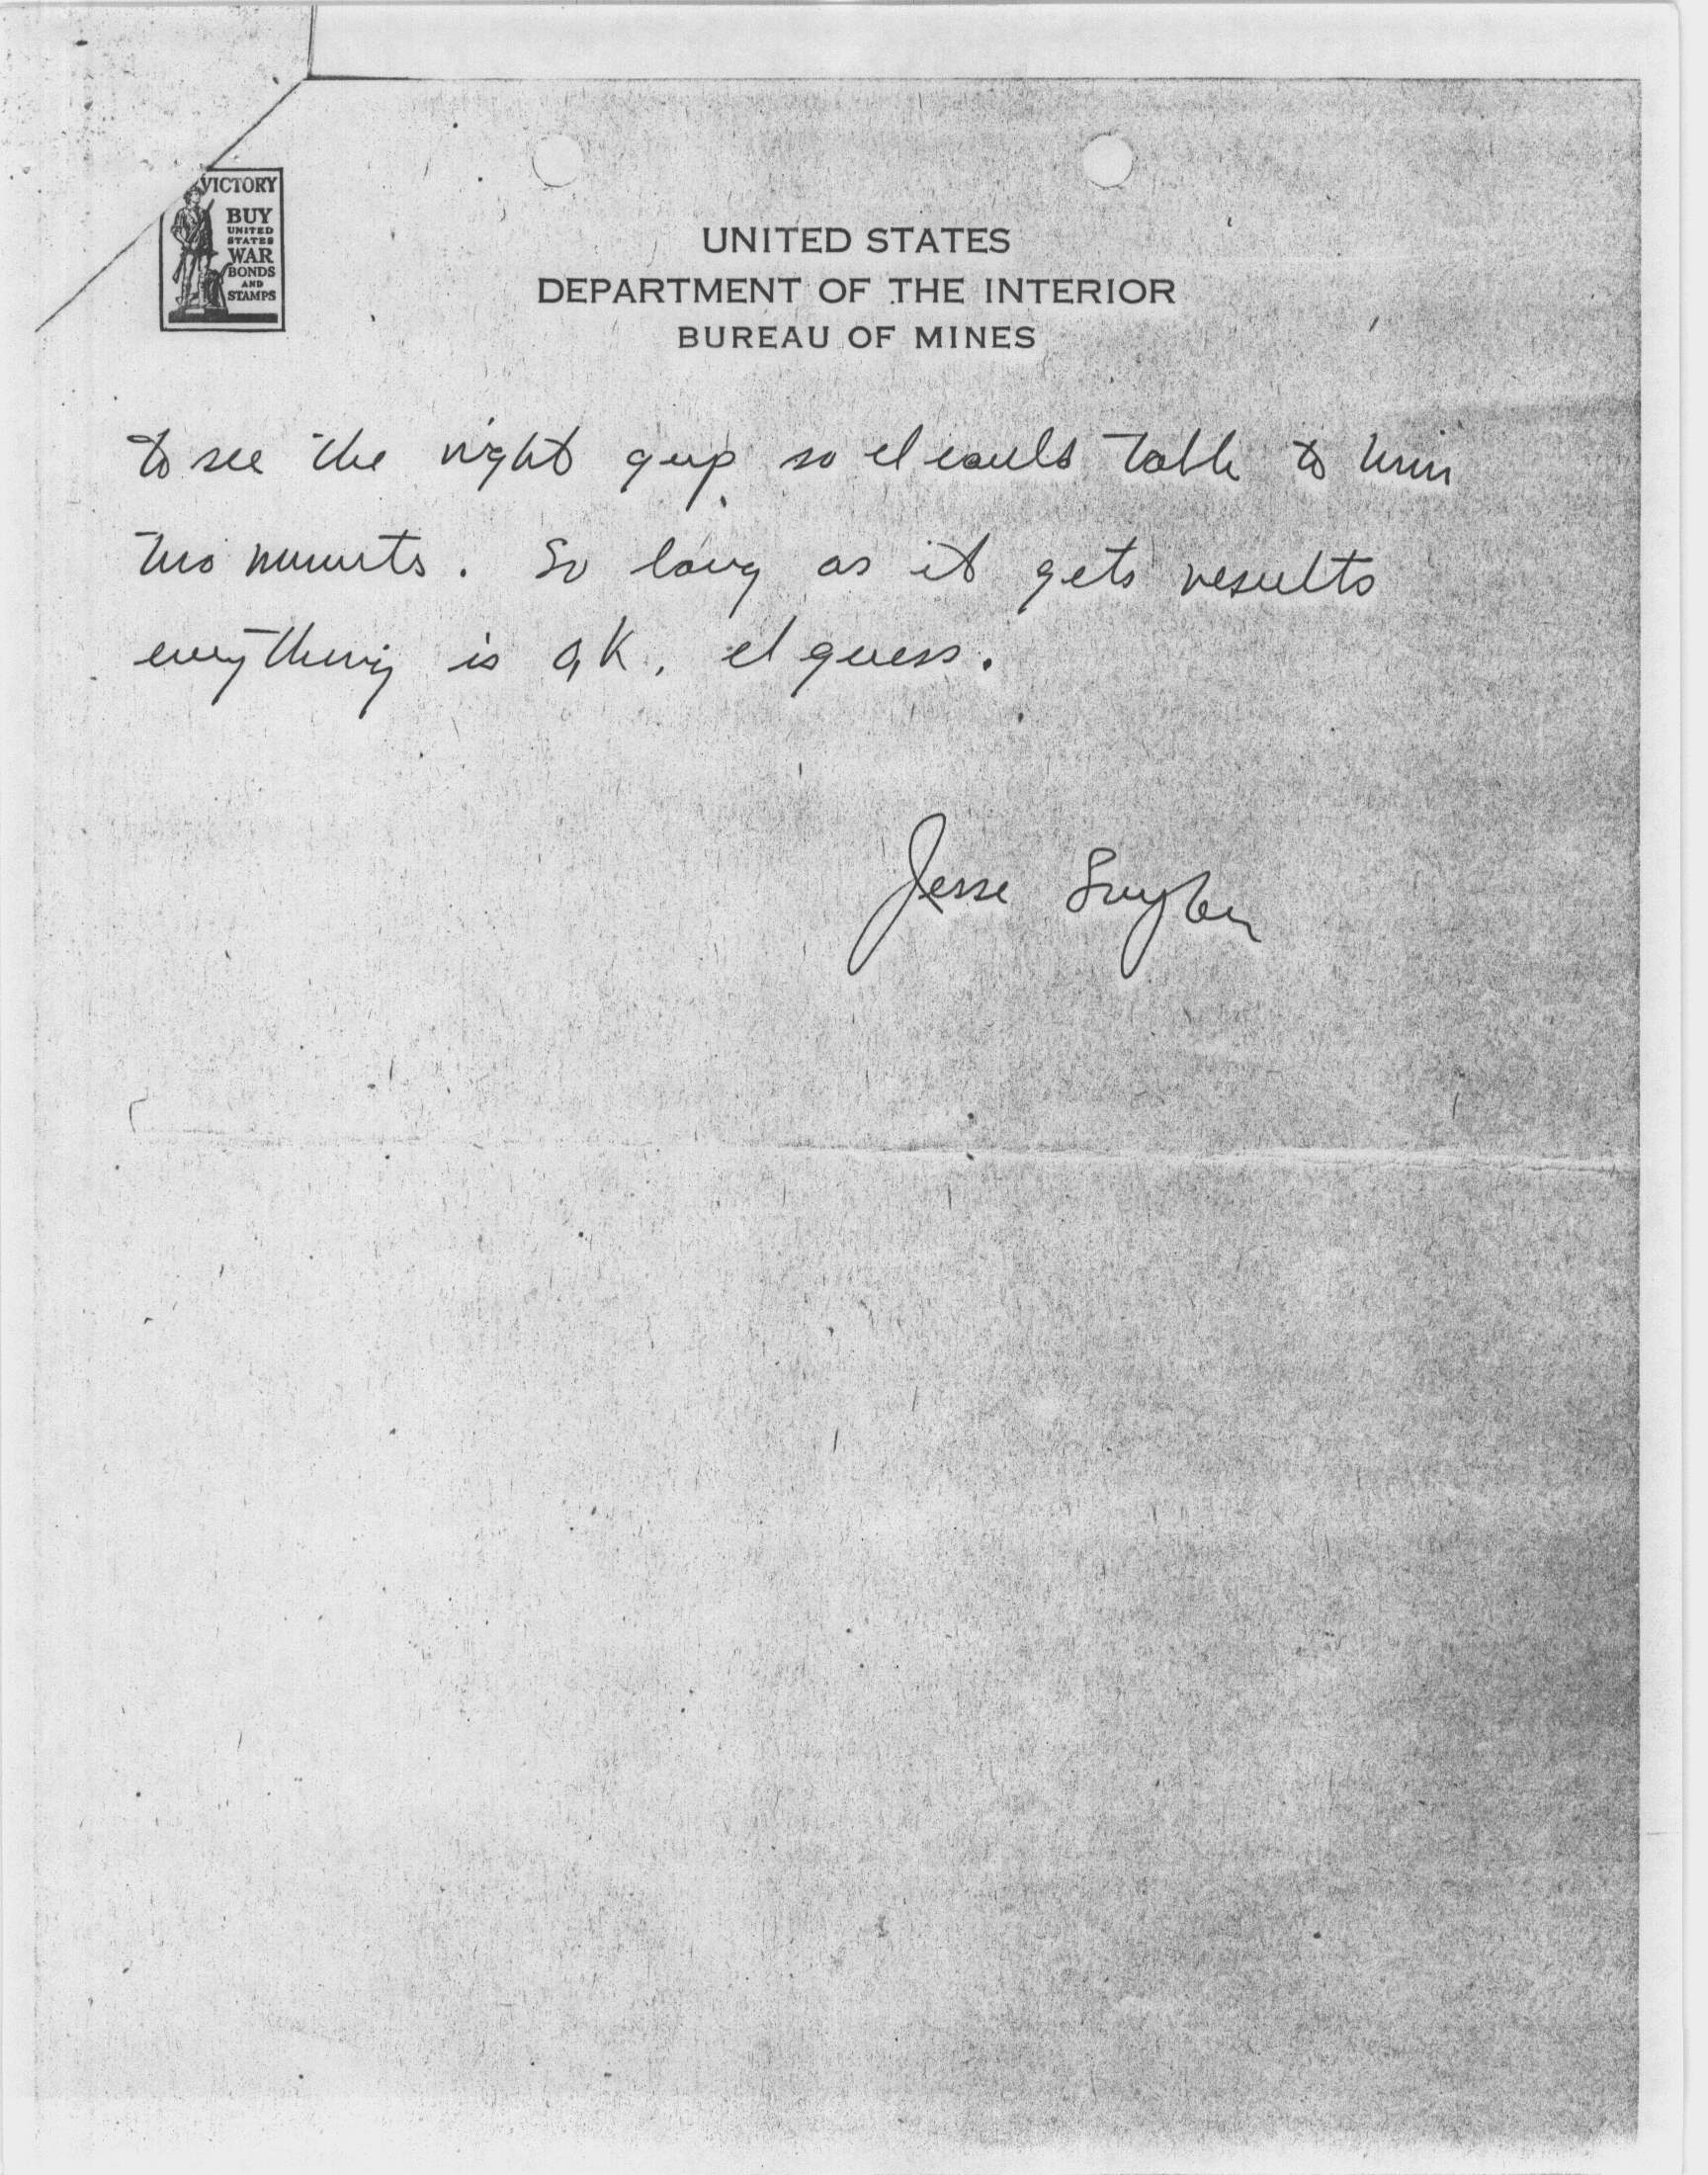 VICTORY
BUY
UNITED
STATES
WAR
BONDS
AND
STAMPS
UNITED STATES
DEPARTMENT OF THE INTERIOR
BUREAU OF MINES
to see the right guy so I could talk to him
two minutes. So long as it gets results
everything is O.K. I guess.
Jesse